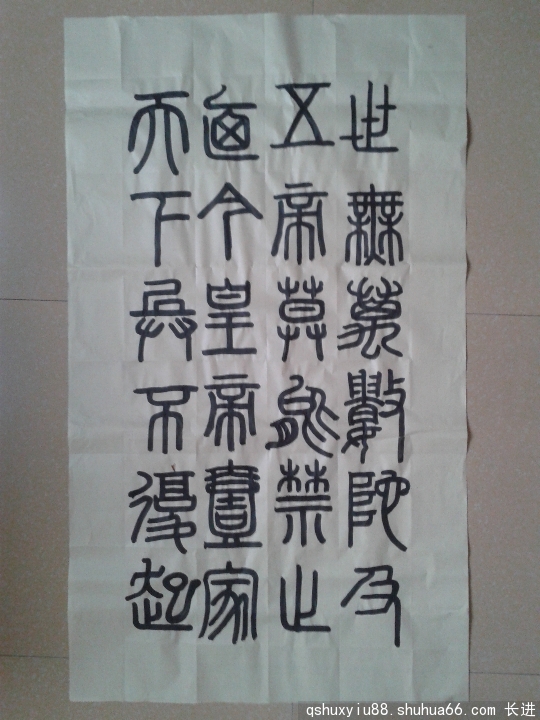 世無萬數陀及
五帝莫能禁止
廼今皇帝壹家
天下兵不復起
qshuxyiu88.shuhua66.com 长进